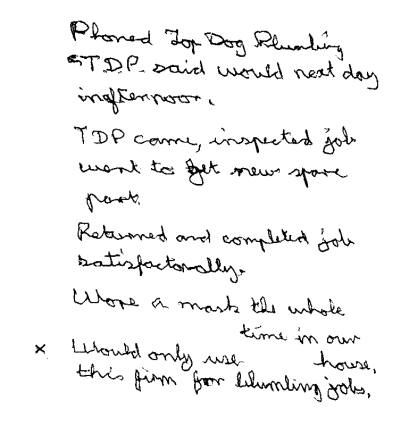 Phoned Top Dog Plumbing
T.D.P. said would next day
in afternoon.
TDP came, inspected job
went to get new spare
part.
Returned and completed job
satisfactorally.
Wore a mask the whole
time in our
house.
× Would only use
this firm for plumbing jobs.